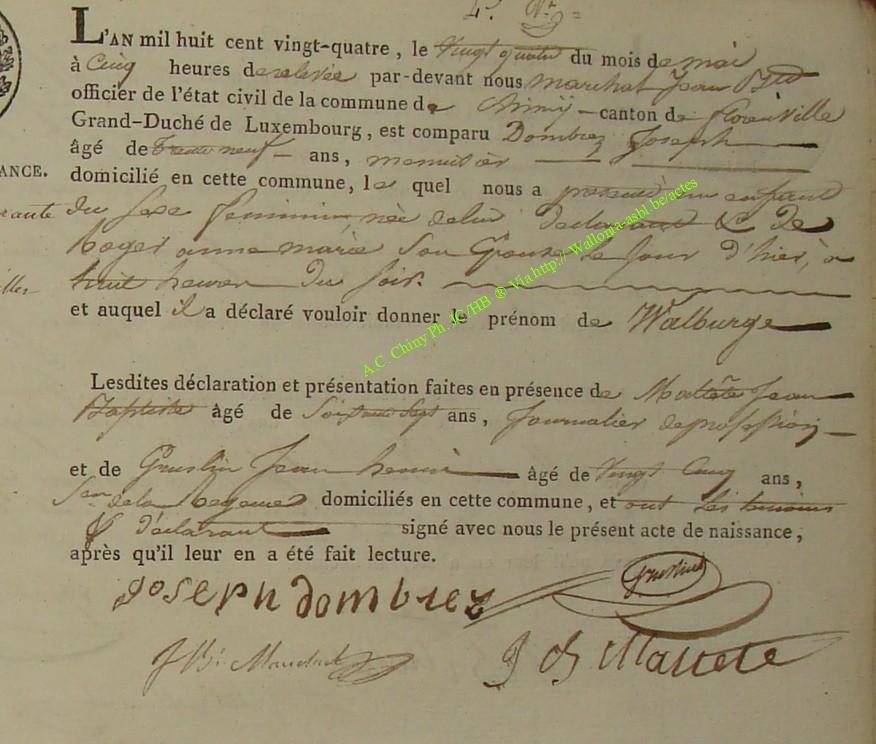 L'AN mil huit cent vingt-quatre, le Vingt quatre du mois de mai
à Cinq heures de relevée par-devant nous marchal Jean Bte
officier de l'état civil de la commune de Chiny canton de florenville
Grand-Duché de Luxembourg, est comparu Dombrez Joseph
ANCE.
âgé de trente neuf ans, menuisier
domicilié en cette commune, le quel nous a presenté un enfant
du sexe feminin née de lui déclarant & de
Roger anne marie son Epouse Le jour d'hier, à
huit heures du soir.
et auquel il a déclaré vouloir donner le prénom de Walburge
A.C. Chiny Ph. JC/HB ® Via http://Wallonia-asbl.be/actes
Lesdites déclaration et présentation faites en présence de Jean
Baptiste âgé de Soixante Sept ans, Journalier de profession
et de Gruslin Jean henri âgé de Vingt Cinq ans,
domiciliés en cette commune, et ont les temoins
& déclarant signé avec nous le présent acte de naissance,
après qu'il leur en a été fait lecture.
Joseph dombrez
Gruslin